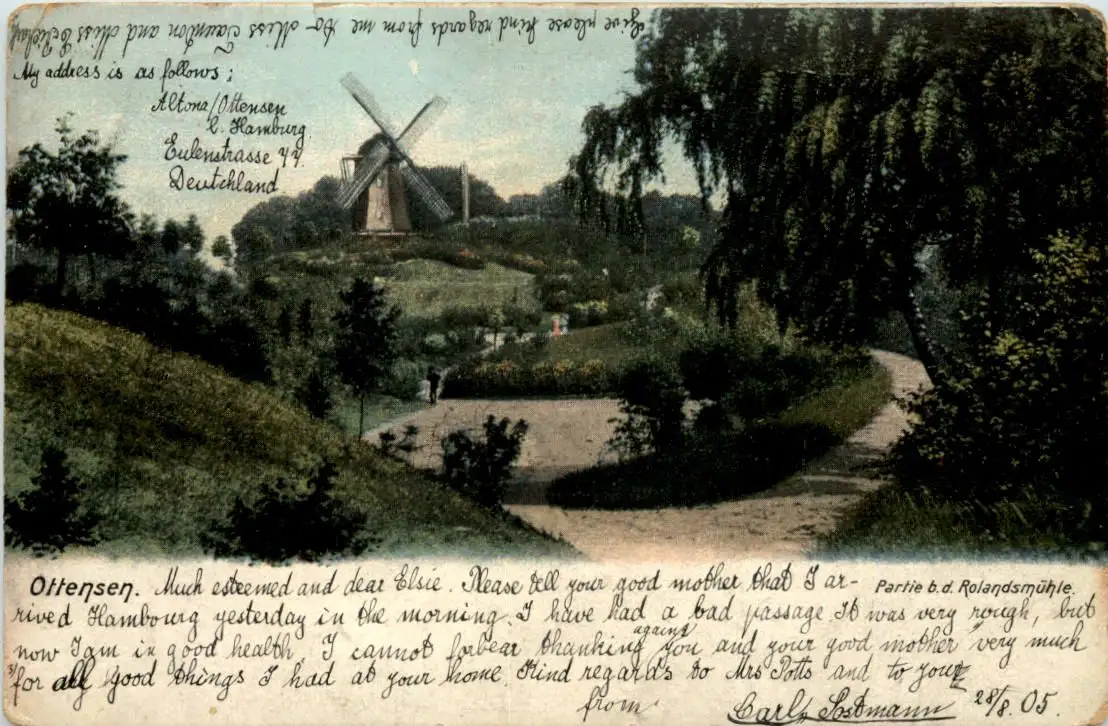 Give please kind regards from me to Miss Taunton and Miss
My address is as follows;
Altona/Ottensen
b. Hamburg.
Eulenstrasse 77.
Deutchland
Ottensen. Much esteemed and dear Elsie. Please tell your good mother that I ar-
Partie b. d. Rolandsmühle.
rived Hambourg yesterday in the morning. I have had a bad passage. It was very rough, but
now I am in good health. I cannot forbear thanking againg you and your good mother very much
for all good things I had at your home. Kind regards to Mrs Potts and to you
from Carl 28/8. 05.